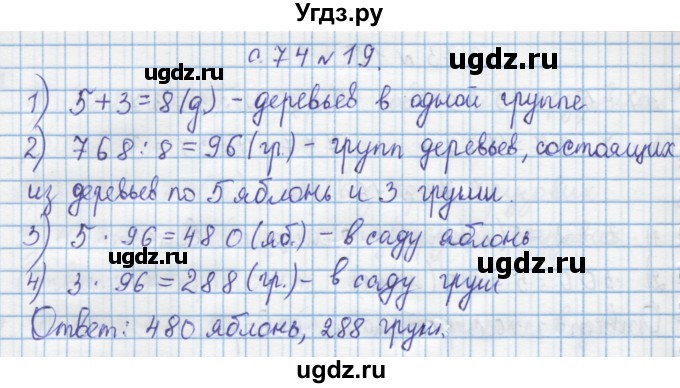 Угдз.ру
с. 74 № 19.
ugdz.ru ugdz.ru
1) 5+3=8(д) - деревьев в одной группе
ugdz.ru
2) 768:8=96(гр.) - групп деревьев, состоящих
ugdz.ru ugdz.ru
из деревьев по 5 яблонь и 3 груши.
ugdz.ru
3) 5 · 96=480(яб.) - в саду яблонь
ugdz.ru ugdz.ru
4) 3 · 96=288(гр.) - в саду груш
ugdz.ru
Ответ: 480 яблонь, 288 груш.
ugdz.ru ugdz.ru